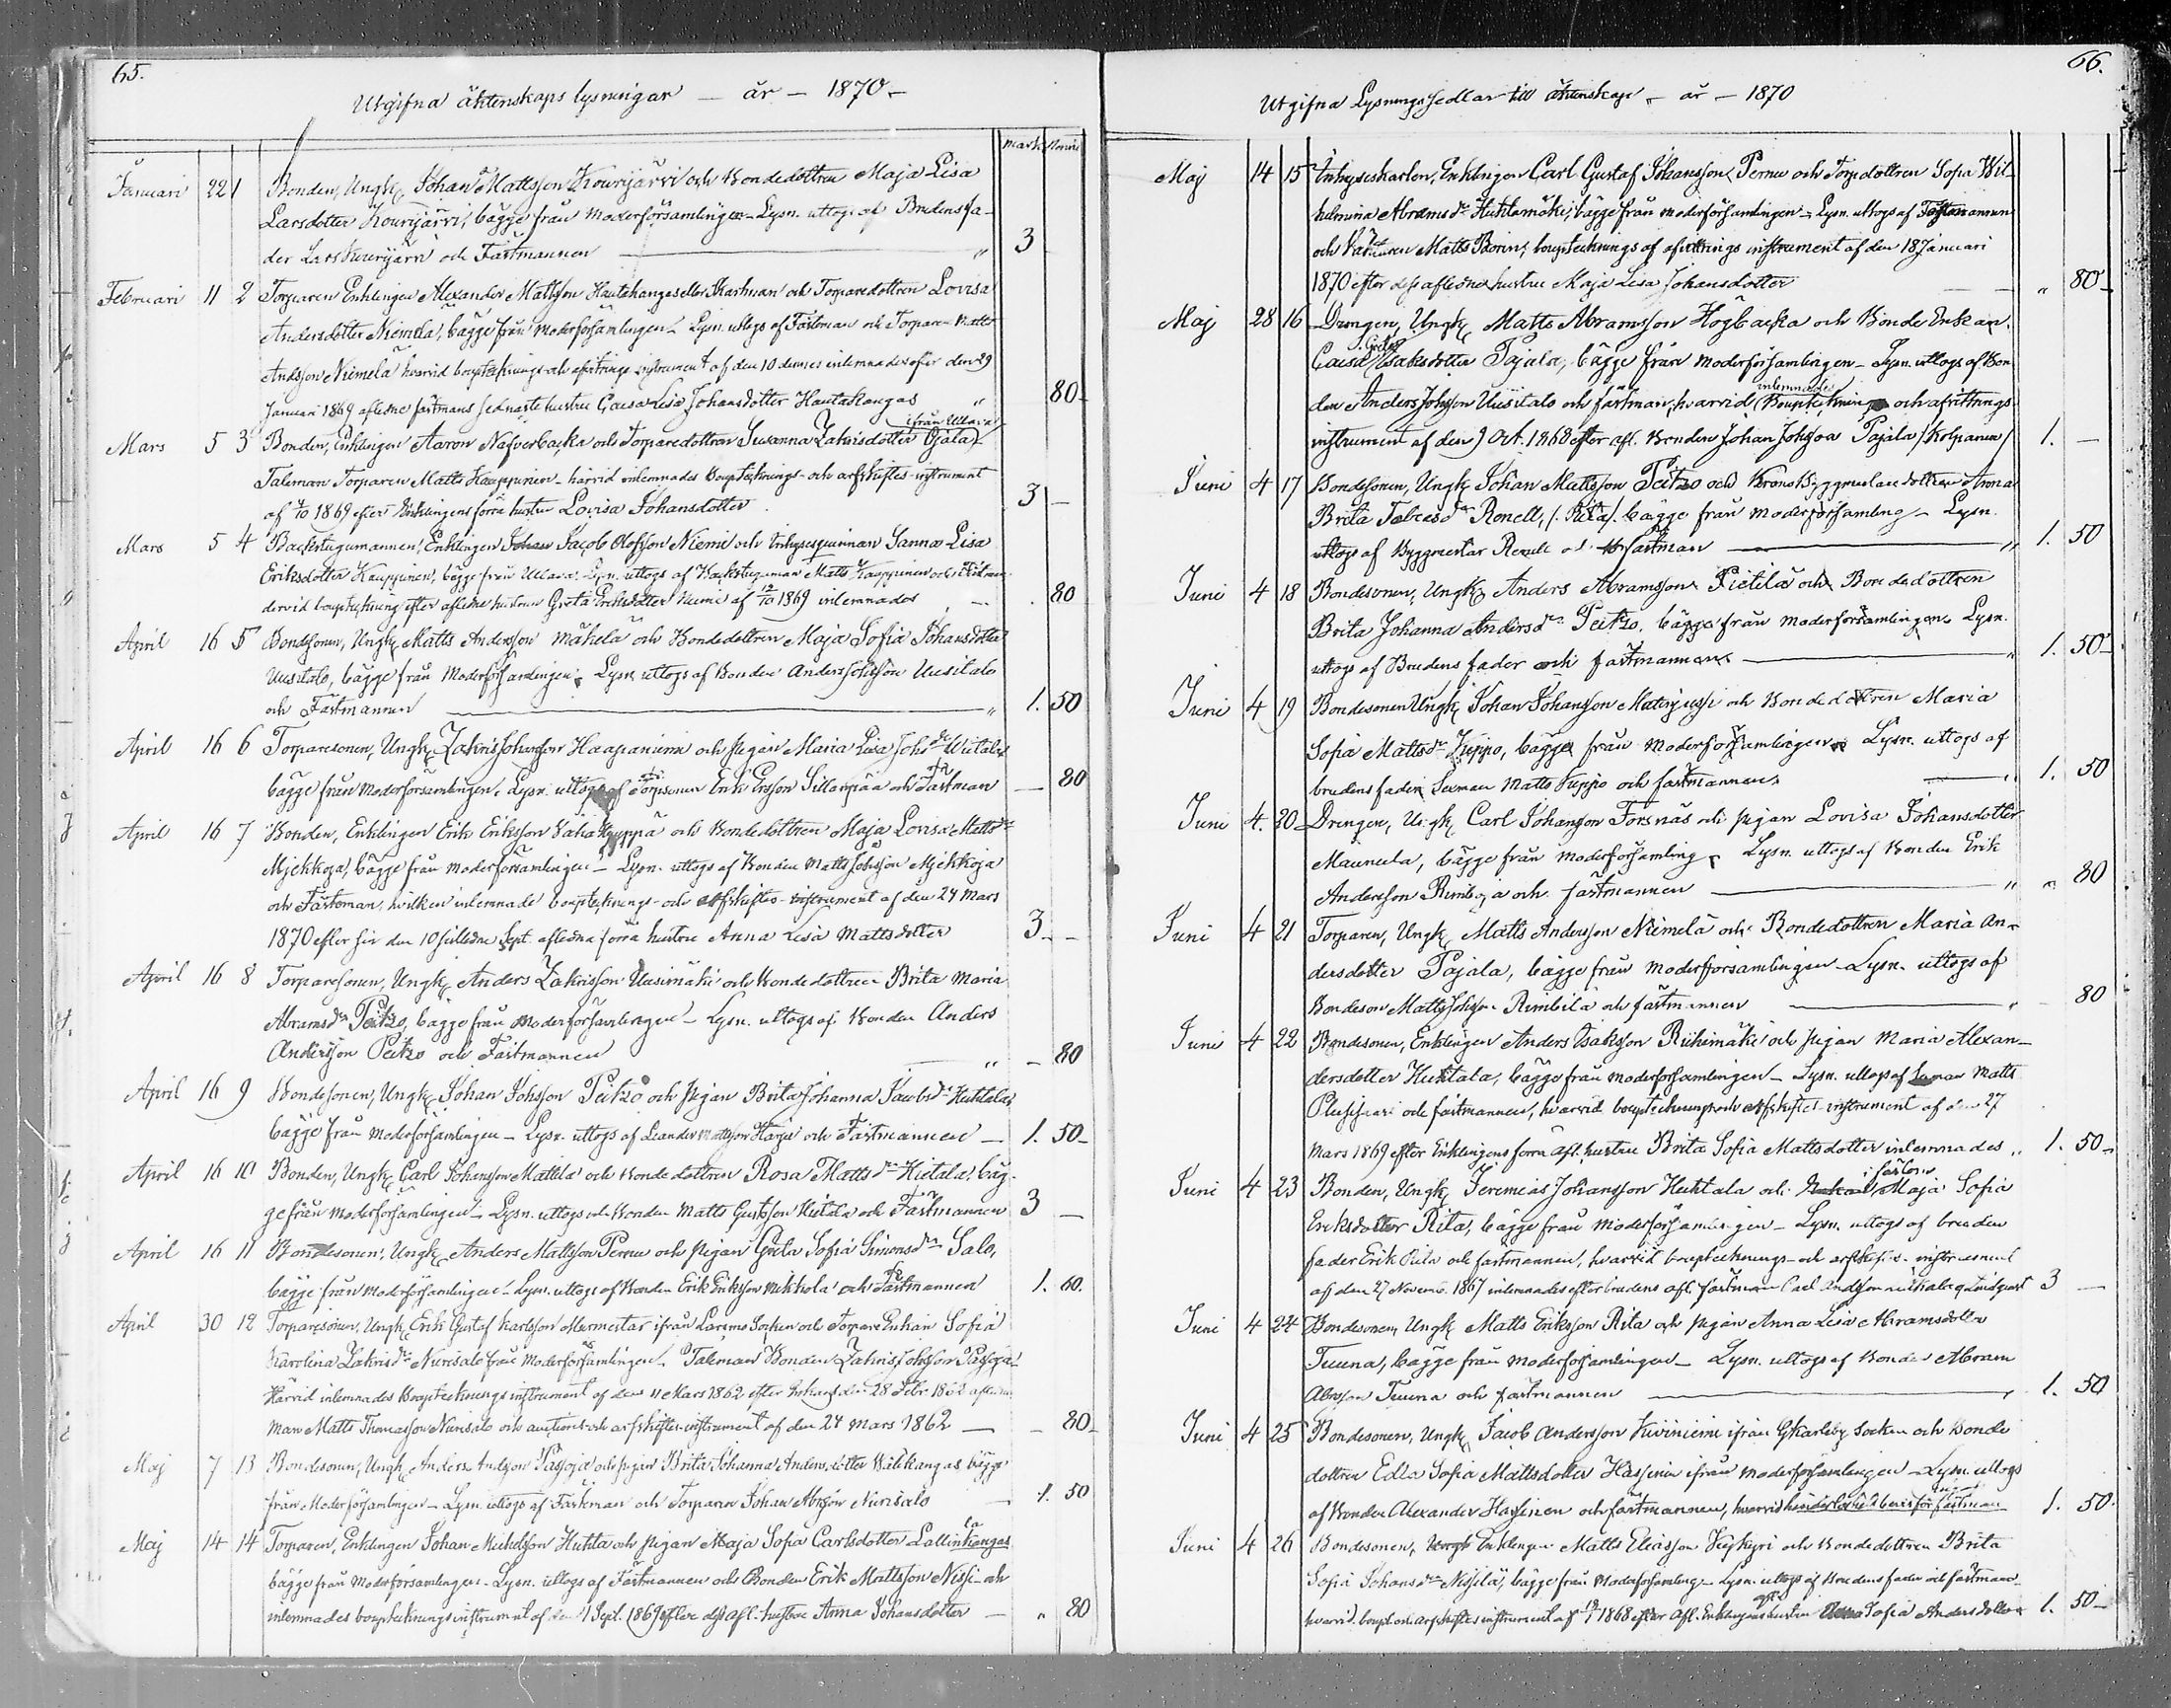 65.
Utgifna äktenskaps lysningar — år — 1870 —
mark penni
Januari 22 1 Bonden, Ungk. Johan Mattsson Kourijärvi och Bondedottren Maja Lisa
Larsdotter Kourijärvi, bägge från moderförsamlingen. Lysn. uttogs af Brudens fa-
der Lars Kourijärvi och Fästmannen — " 3
Februari 11 2 Torparen Enklingen Alexander Mattsson Hautakangas eller Skartman och Torparedottren Lovisa
Andersdotter Niemelä, bägge från moderförsamlingen. Lysn. uttogs af Fästman och Torparen Matts
Andsson Niemelä hvarvid bouptecknings och afvittrings instrument af den 10 dennes inlemnades efter den 29
Januari 1869 aflidne fästmans sednaste hustru Caisa Lisa Johansdotter Hautakangas " 80
Mars 5 3 Bonden, Enklingen Aaron Nafverbacka och Torparedottren Susanna Zakrisdotter Ojala ifrån Ullava
Taleman Torparen Matts Kauppinen — härvid inlemnades Bouptecknings- och arfskiftes-instrument
af 1869 efter Enklingens förra hustru Lovisa Johansdotter 3 —
Mars 5 4 Backstugumannen, Enklingen Jacob Olofsson Niemi och Inhysesqvinnan Sanna Lisa
Eriksdotter Kauppinen, bägge från Ullava. Lysn. uttogs af Backstuguman Matts Kauppinen och
dervid bouptekning efter aflidne hustrun Greta Eriksdotter Niemi af 1869 inlemnades — 80
April 16 5 Bondesonen, Ungk. Matts Andersson Mäkelä och Bondedottren Maja Sofia Johansdotter
Uusitalo, bägge från Moderförsamlingen. Lysn. uttogs af Bonden Anders Johsson Uusitalo
och Fästmannen — " 1. 50
April 16 6 Torparesonen, Ungk. Zakris Johansson Haapaniemi och pigan Maria Lisa Johsdr
bägge från Moderförsamlingen. Lysn. uttogs af Torpsonen Erik Ersson Sillanpää och Fästman — 80
April 16 7 Bonden, Enklingen Erik Eriksson och Bondedottren Maja Lovisa Mattsdr
Mjekkoja, bägge från moderförsamlingen — Lysn. uttogs af Bonden Matts Johsson Mjekkoja
och Fästman, hvilken inlemnade bouptecknings- och arfskiftes-instrument af den 24 Mars
1870 efter sin den 10 sistledne Sept. aflidna förra hustru Anna Lisa Mattsdotter 3. —
April 16 8 Torparesonen, Ungk. Anders Zakrisson Uusimäki och Bondedottren Brita Maria
Abramsdr Peitzo, bägge från moderförsamlingen — Lysn. uttogs af Bonden Anders
Andersson Peitzo och Fästmannen " — 80
April 16 9 Bondesonen, Ungk. Johan Johsson Peitzo och pigan Brita Johanna Jacobsdr Huhtala,
bägge från moderförsamlingen — Lysn. uttogs af Leander Mattsson och Fästmannen — 1. 50
April 16 10 Bonden, Ungk. Carl Johansson Mattila och Bondedottren Rosa Mattsdr Hietala, bäg-
ge från moderförsamlingen — Lysn. uttogs och Bonden Matts Gustsson Hietala och Fästmannen 3 —
April 16 11 Bondesonen, Ungk. Anders Mattsson Pernu och pigan Greta Sofia Simonsdr Salo,
bägge från moderförsamlingen. Lysn. uttogs af Bonden Erik Eriksson Mikkola och Fästmannen 1. 60.
April 30 12 Torparesonen, Ungk. Erik Gustaf Karlsson ifrån Larsmo Socken och Torpare Enkan Sofia
Karolina Zakrisdr Nurisalo från moderförsamlingen. Taleman Bonden Zakris Johsson Passoja.
Härvid inlemnades Bouptecknings instrument af den 11 Mars 1862 efter Enkans den 28 Febr. 1862
man Matts Thomasson Nurisalo och auctions och arfskiftes-instrument af den 24 Mars 1862 — — 80
Maj 7 13 Bondesonen, Ungk. Anders Andsson Passoja och pigan Brita Johanna Andersdotter Välikangas, bägge
från Moderförsamlingen — Lysn. uttogs af Fästman och Torparen Johan Abrsson Nurisalo — 1. 50
Maj 14 14 Torparen, Enklingen Johan Michelsson Huhta och pigan Maja Sofia Carlsdotter Lallinkangas
bägge från Moderförsamlingen. Lysn. uttogs af Fästmannen och Bonden Erik Mattsson Nissi och
inlemnades bouptecknings instrument af den 1 Sept. 1869 efter dess afl. hustru Anna Johansdotter — " 80
66.
Utgifna Lysnings Sedlar till äktenskap — år — 1870
Maj 14 15 Inhyseskarlen, Enklingen Carl Gustaf Johansson Pernu och Torpdottren Sofia Wil-
helmina Abramsdr Huhtamäki, bägge från moderförsamlingen. Lysn. uttogs af Fästmannen
och Matts Borin, bouptecknings af afvittrings instrument af den 18 Januari
1870 efter dess aflidne hustru Maja Lisa Johansdotter — " 80
Maj 28 16 Drengen, Ungk. Matts Abramsson Högbacka och Bonde Enkan
Caisa Greta Isaksdotter Pajala, bägge från moderförsamlingen — Lysn. uttogs af Bon-
den Anders Johsson Uusitalo och fästman, hvarvid inlemnades Bouptecknings och afvittrings
instrument af den 9 Oct. 1868 efter afl. Bonden Johan Johsson Pajala / Kolpanen / 1. —
Juni 4 17 Bondesonen, Ungk. Johan Mattsson Peitzo och Kronobyggmästaredottren Anna
Brita Tobiasdr Ronell, /. Rita /. bägge från moderförsamling — Lysn.
uttogs af Byggmestar Ronell och fästman — " 1. 50
Juni 4 18 Bondesonen, Ungk. Anders Abramsson Pietilä och Bondedottren
Brita Johanna Andersdr Peitzo, bägge från moderförsamlingen. Lysn.
uttogs af Brudens fader och fästmannen — " 1. 50
Juni 4 19 Bondesonen Ungk. Johan Johansson Matinjussi och Bondedottren Maria
Sofia Mattsdr Kuppo, bägge från moderförsamlingen. Lysn. uttogs af
brudens fader Sexman Matts Kuppo och fästmannen — " 1. 50
Juni 4. 20 Drengen, Ungk. Carl Johansson Forsnäs och pigan Lovisa Johansdotter
Maunula, bägge från moderförsamling. Lysn. uttogs af Bonden Erik
Andersson Rimboja och fästmannen — " " 80
Juni 4 21 Torparen, Ungk. Matts Andersson Niemelä och Bondedottren Maria An-
dersdotter Pajala, bägge från moderförsamlingen Lysn. uttogs af
Bondeson Matts Johsson Rimbilä och fästmannen — " 80
Juni 4 22 Bondesonen, Enklingen Anders Isaksson Riihimäki och pigan Maria Alexan-
dersdotter Huhtala, bägge från moderförsamlingen — Lysn. uttogs af Matts
och fästmannen, hvarvid bouptecknings och arfskiftes-instrument af den 27
Mars 1869 efter Enklingens förra afl. hustru Brita Sofia Mattsdotter inlemnades " 1. 50
Juni 4 23 Bonden, Ungk. Jeremias Johansson Huhtala och Maja Sofia
Eriksdotter Rita, bägge från moderförsamlingen — Lysn. uttogs af bruden
fader Erik Rita och fästmannen, hvarvid bouptecknings- och arfskiftes-instrument
af den 27 Novemb. 1867 inlemnades efter brudens afl. fästman Carl Andsson Lindqvist 3 —
Juni 4 24 Bondesonen, Ungk. Matts Eriksson Rita och pigan Anna Lisa Abramsdotter
Tuuna, bägge från moderförsamlingen — Lysn. uttogs af Bonden Abram
Abrsson Tuuna och fästmannen — " 1. 50
Juni 4 25 Bondesonen, Ungk. Jacob Andersson Kiviniemi ifrån Gkarleby Socken och Bonde
dottren Edla Sofia Mattsdotter Hassinen ifrån moderförsamlingen — Lysn. uttogs
af Bonden Alexander Hassinen och fästmannen, hvarvid hinderlöshets bevis för fästman 1. 50
Juni 4 26 Bondesonen, Enklingen Matts Eliasson och Bondedottren Brita
Sofia Johansdr Nissilä, bägge från Moderförsamling — Lysn. uttogs af Brudens fader och fästman
hvarvid boupt. och arfskiftes instrument af 1868 efter afl. Enklingens hustru Sofia Andersdotter 1. 50